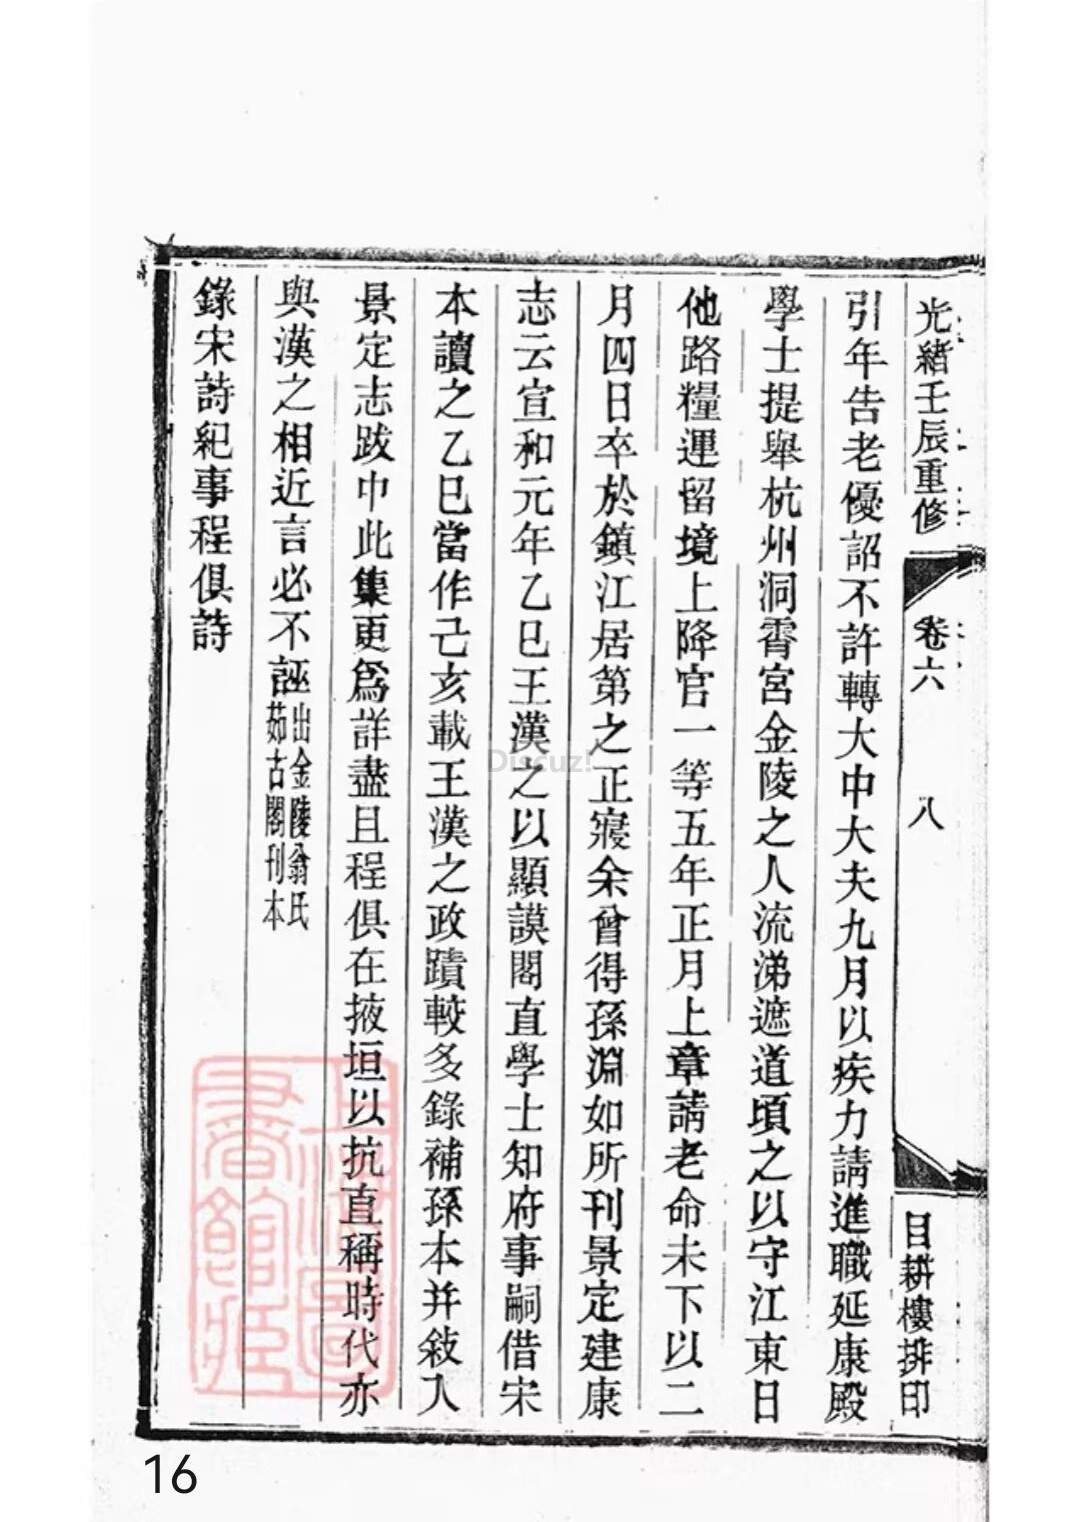 光緒壬辰重修
卷六
八
目耕樓排印
引年告老優詔不許轉大中大夫九月以疾力請進職延康殿
學士提舉杭州洞霄宮金陵之人流涕遮道頃之以守江東日
他路糧運留境上降官一等五年正月上章請老命未下以二
月四日卒於鎮江居第之正寢余曾得孫淵如所刊景定建康
志云宣和元年乙巳王漢之以顯謨閣直學士知府事嗣借宋
本讀之乙巳當作己亥載王漢之政蹟較多錄補孫本并敍入
景定志跋巾此集更爲詳盡且程俱在掖垣以抗直稱時代亦
與漢之相近言必不誣出金陵翁氏
茹古閣刊本
錄宋詩紀事程俱詩
上海圖
書館藏
Discuz!
16